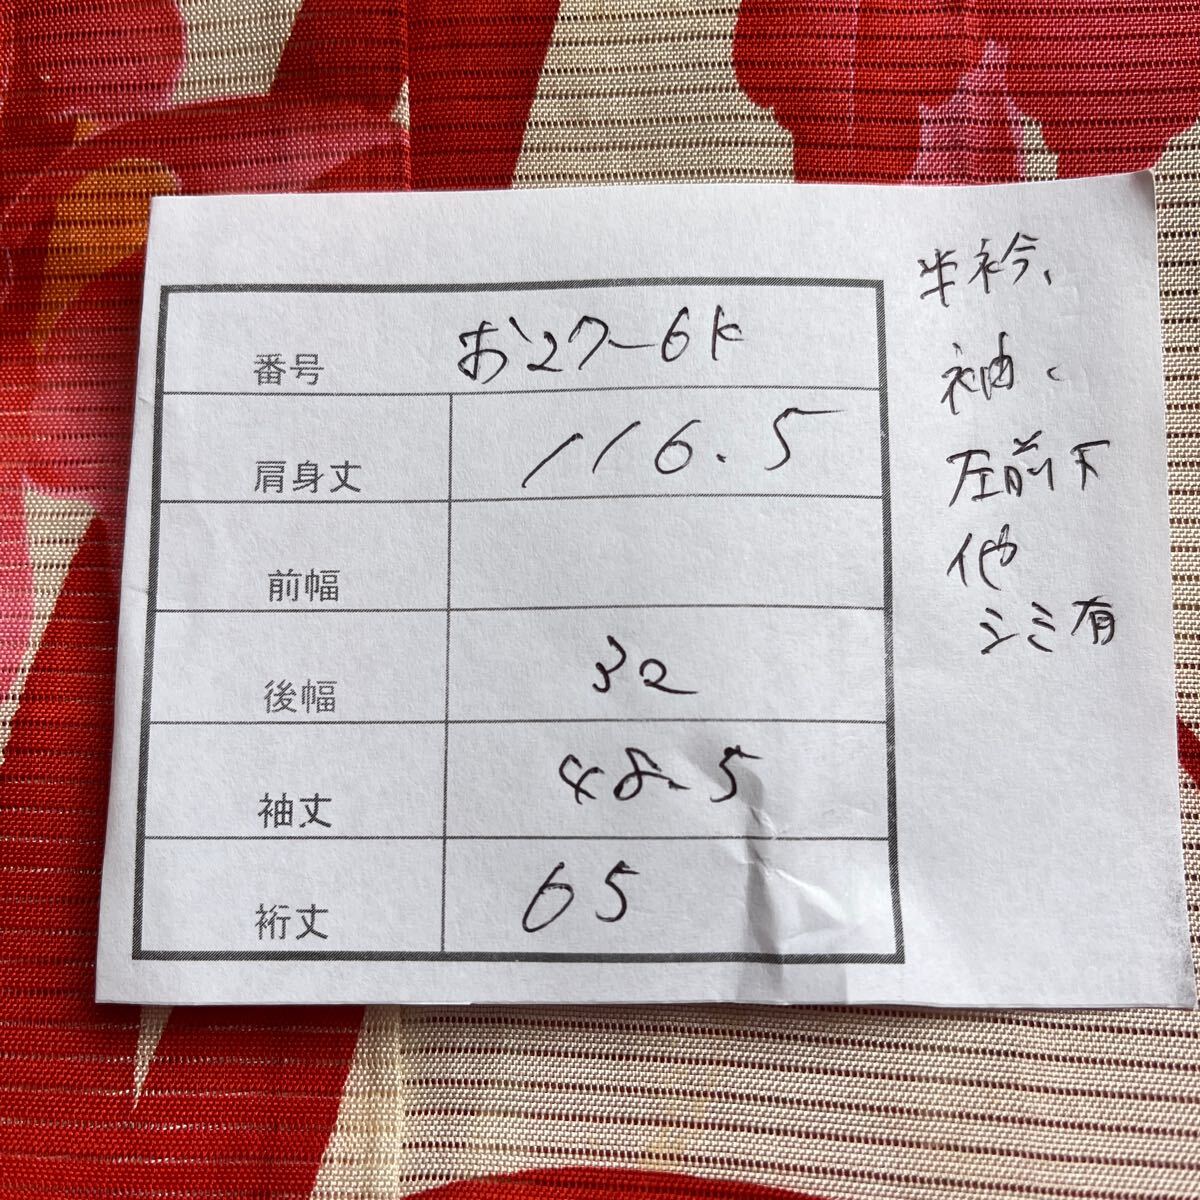 番号 お27-6K
肩身丈 116.5
前幅
後幅 32
袖丈 48.5
裄丈 65
半衿、
袖、
左前下
他
シミ有